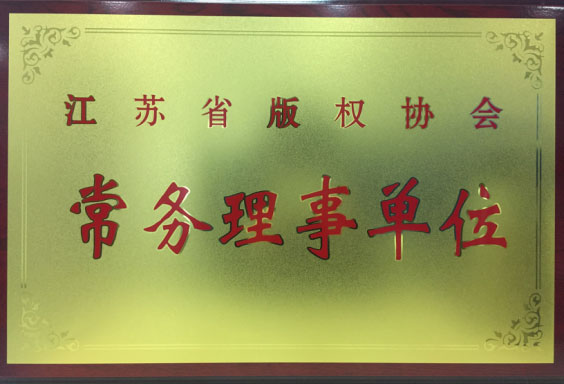 江苏省版权协会
常务理事单位